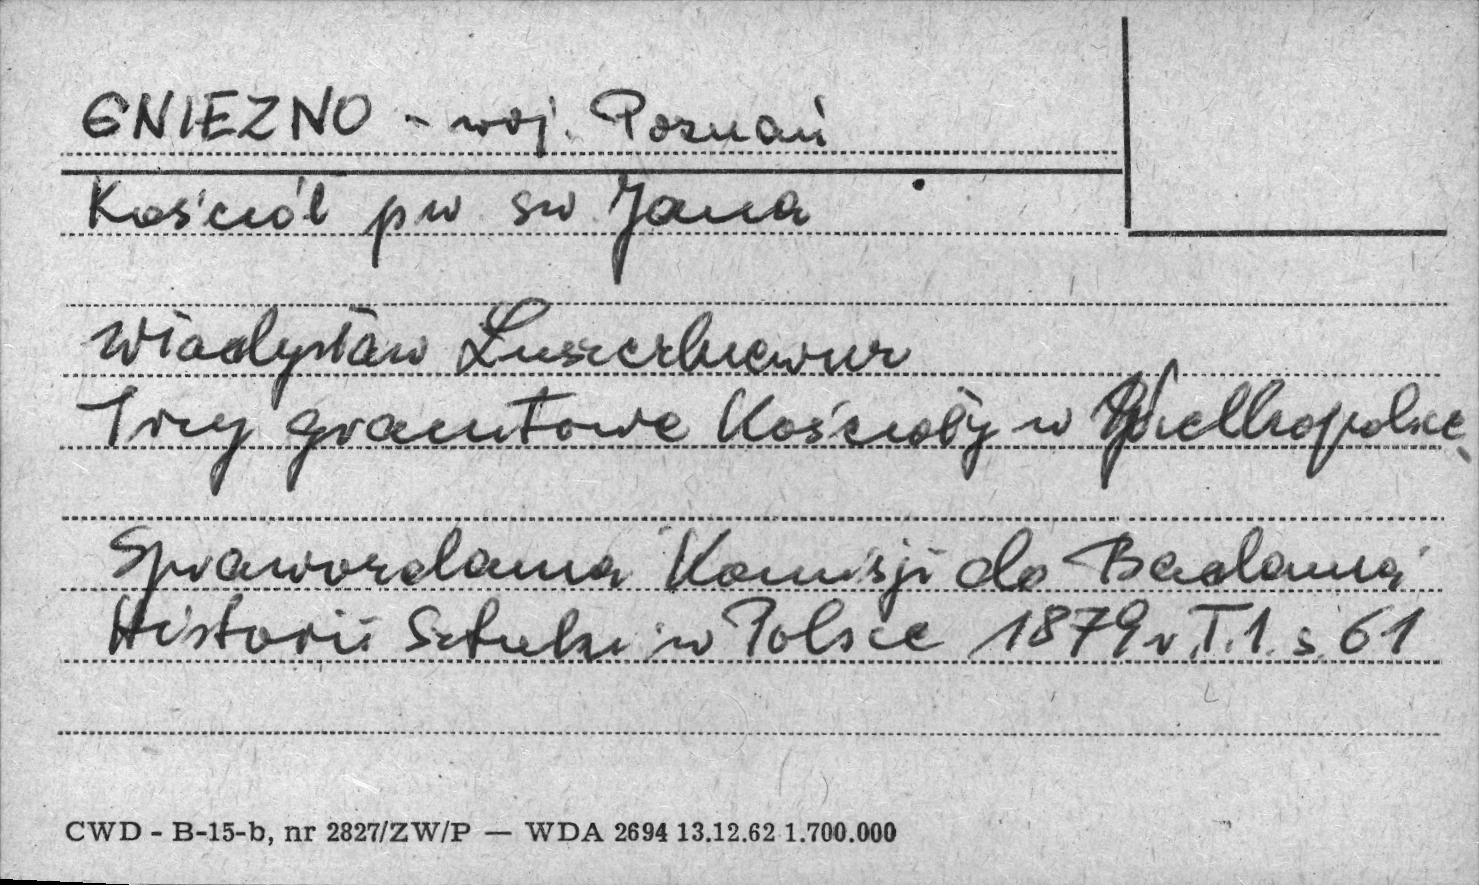 GNIEZNO - woj. Poznań
Kościół pw św Jana
Władysław Łuszczkiewicz
Trzy granitowe Kościoły w Wielkopolsce
Sprawozdania Komisji do Badania
Historii Sztuki w Polsce 1879 r T.1. s. 61
CWD - B-15-b, nr 2827/ZW/P — WDA 2694 13.12.62 1.700.000